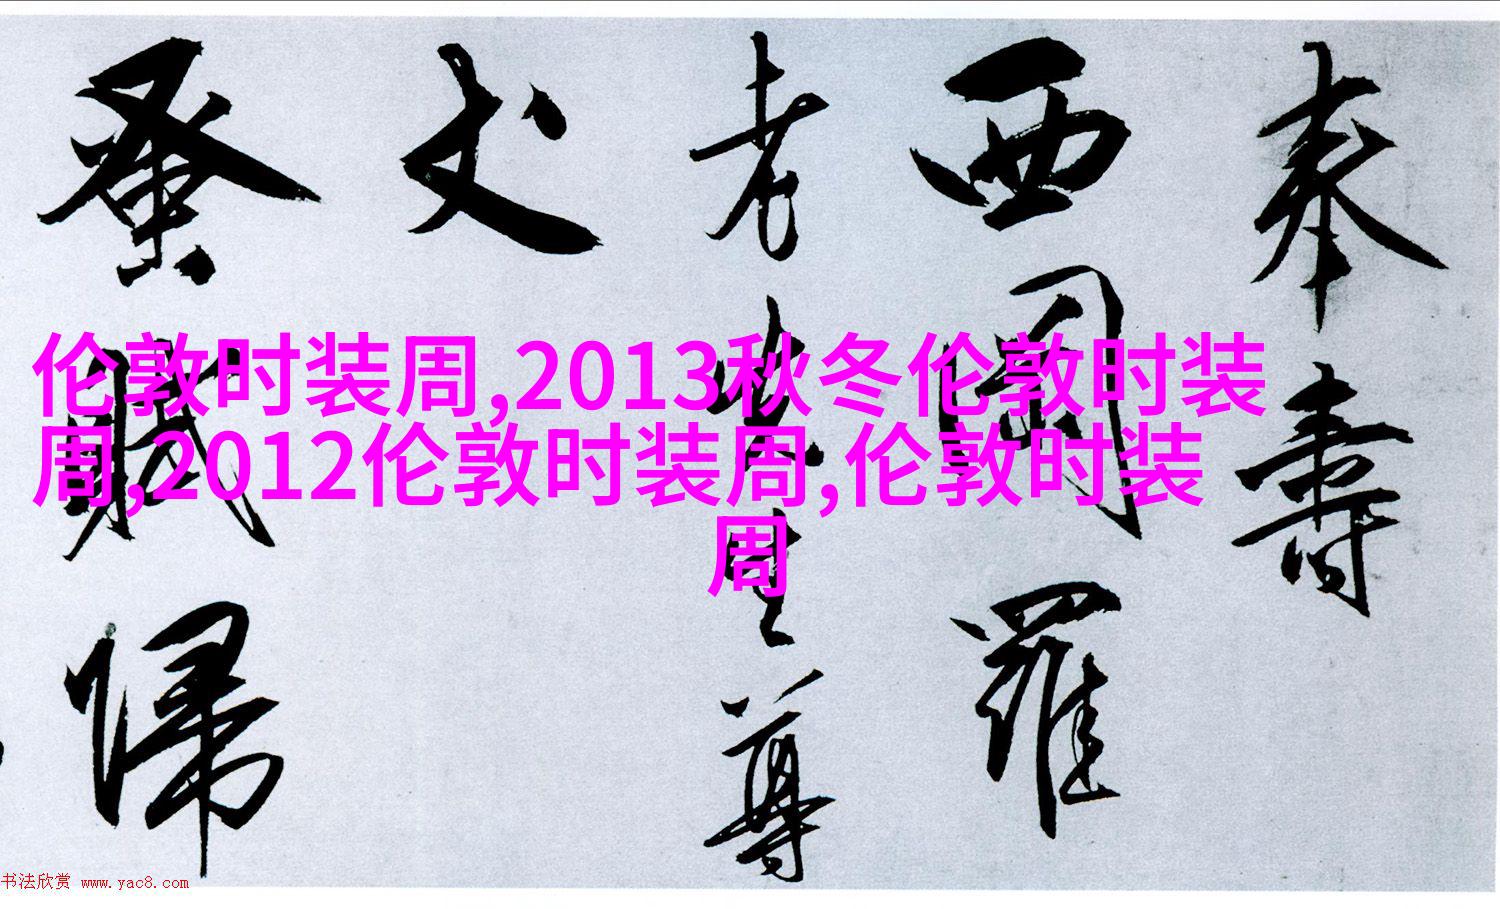 伦敦时装周,2013秋冬伦敦时装
周,2012伦敦时装周,伦敦时装
周
奉壽
西羅
老先生尊
丈
蚤賦歸
书法欣赏 www.yac8.com